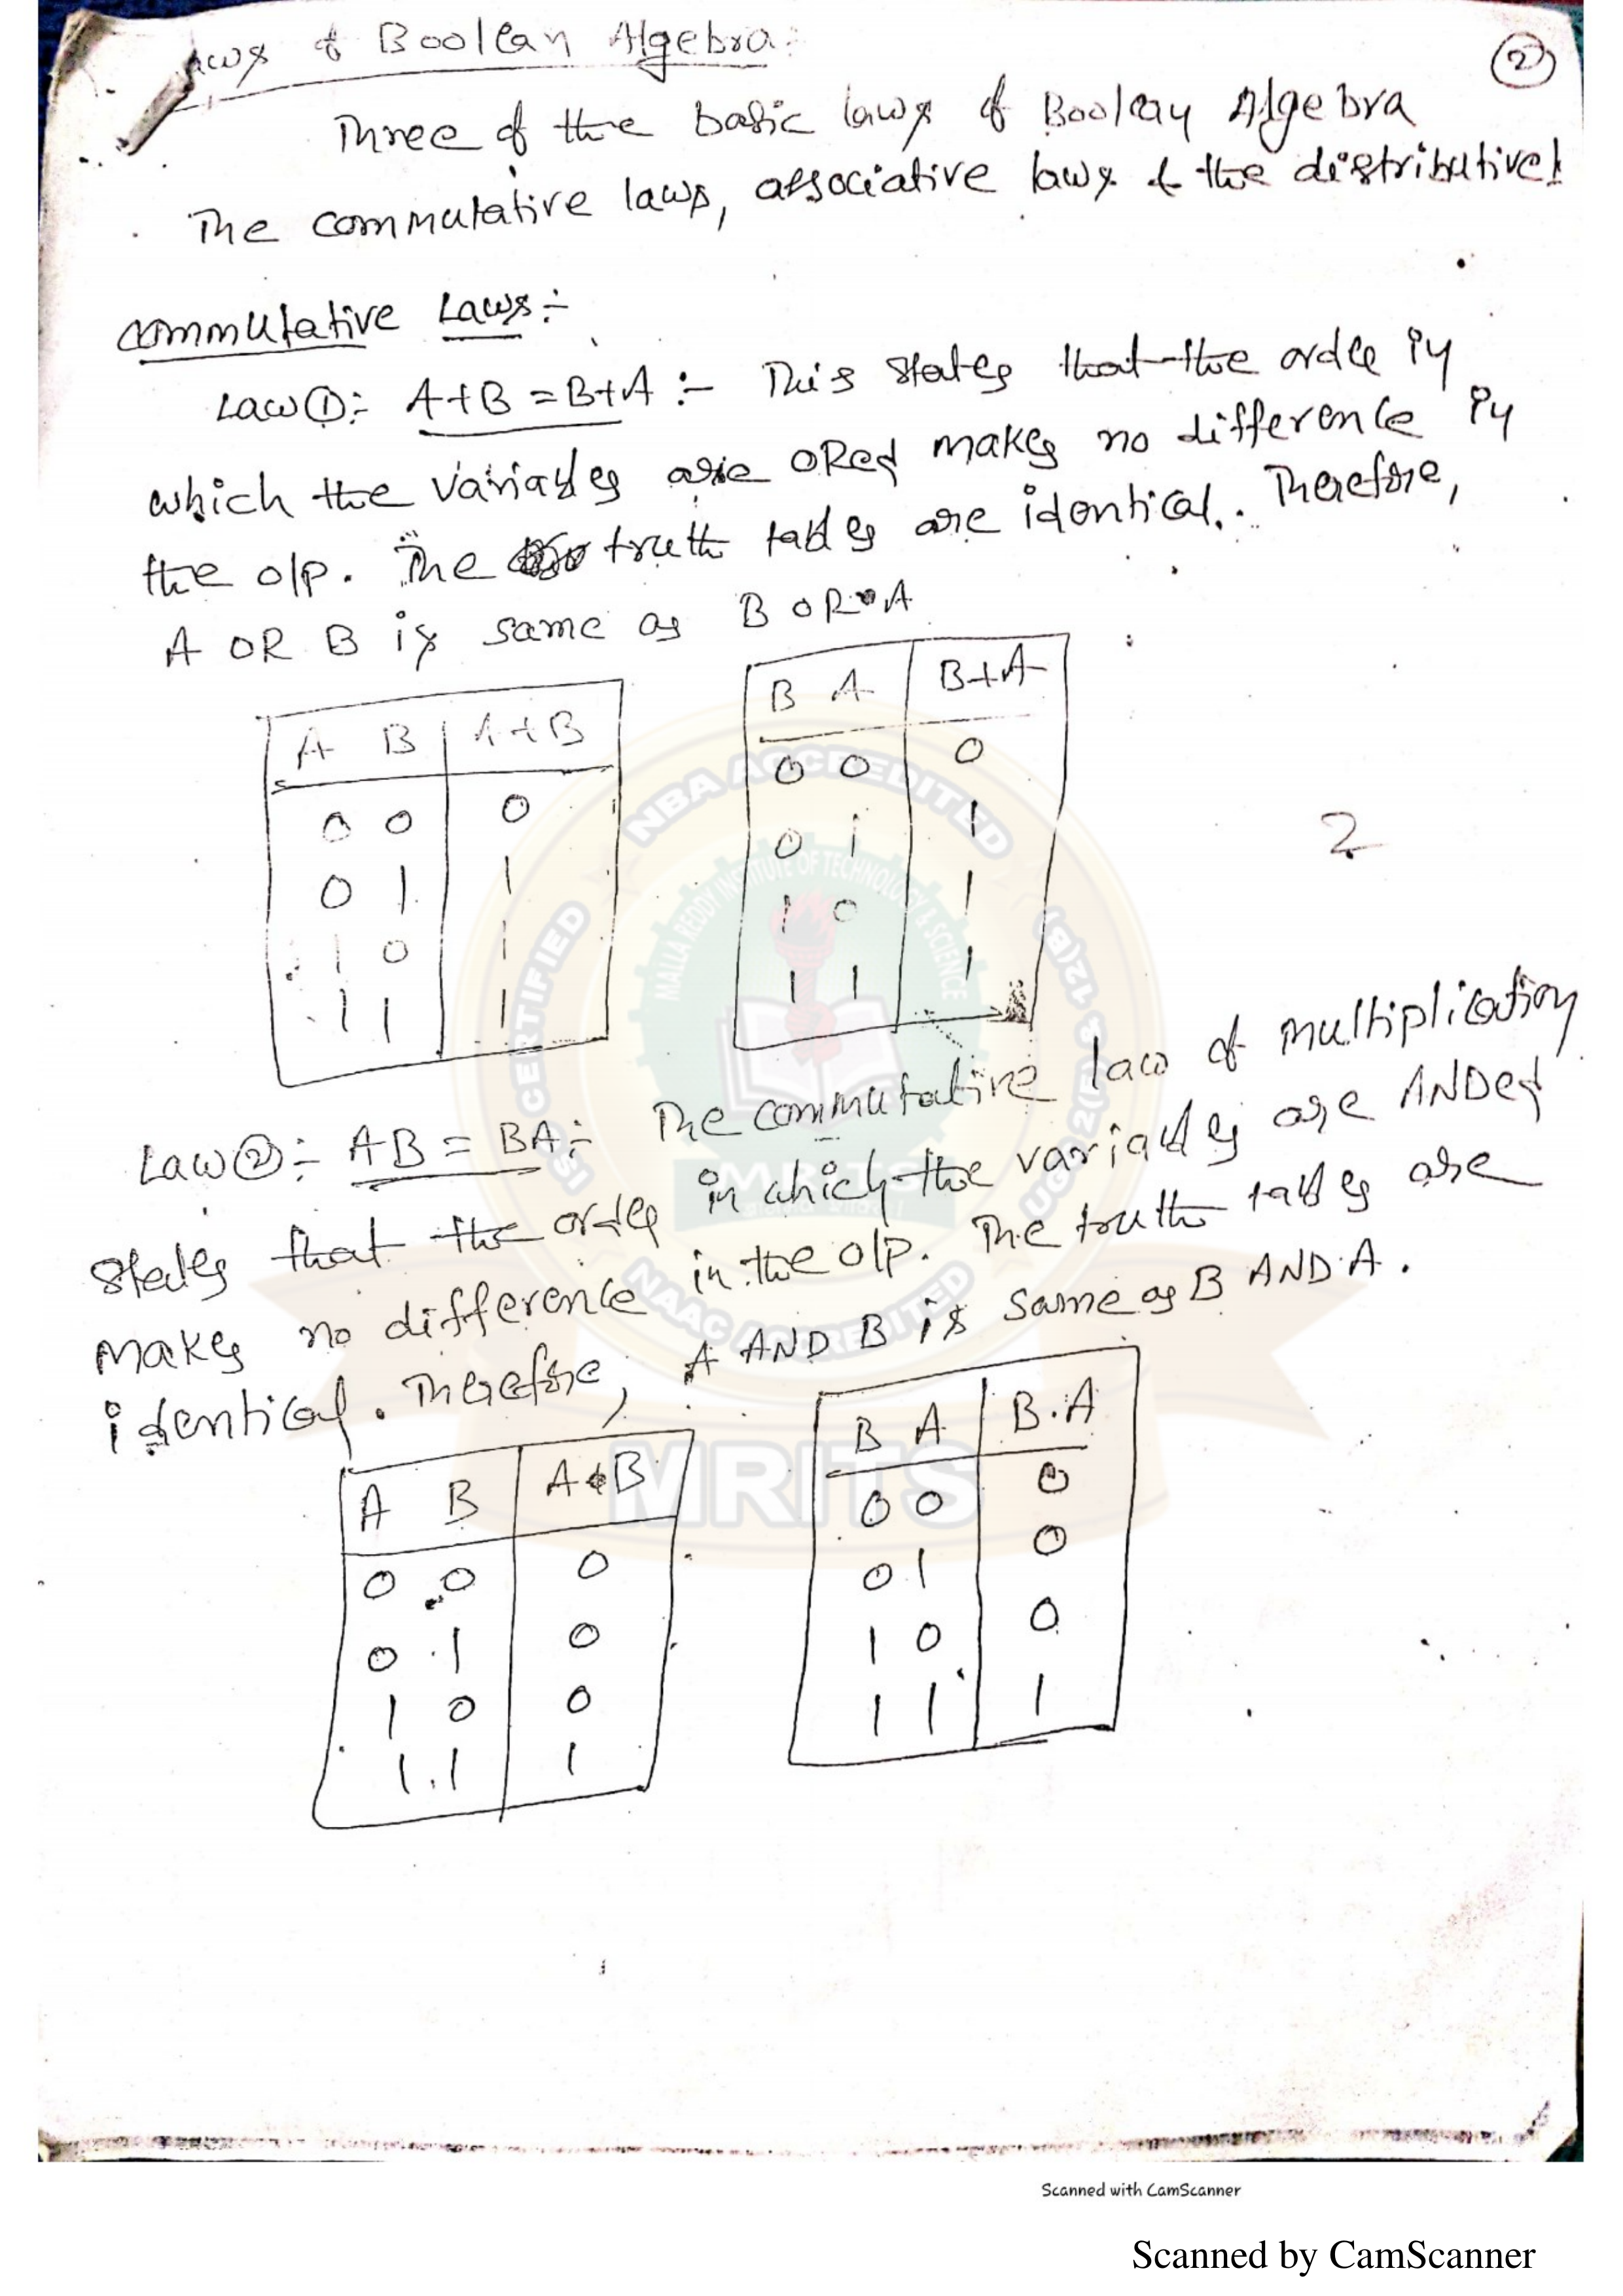 aws of Boolean Algebra:
2
Three of the basic laws of Boolean Algebra
The commutative laws, associative laws & the distributive l
Commutative Laws:-
Law 1:- A+B = B+A :- This states that the order in
which the variables are ORed makes no difference in
the o/p. The truth tables are identical. Therefore,
A OR B is same as B OR A
A B A+B
0 0 0
0 1 1
1 0 1
1 1 1
B A B+A
0 0 0
0 1 1
1 0 1
1 1 1
2
Law 2:- AB = BA:- The commutative law of multiplication
states that the order in which the variables are ANDed
makes no difference in the o/p. The truth tables are
identical. Therefore, A AND B is same as B AND A.
A B A.B
0 0 0
0 1 0
1 0 0
1 1 1
B A B.A
0 0 0
0 1 0
1 0 0
1 1 1
NBA ACCREDITED
CERTIFIED
MALLA REDDY INSTITUTE OF TECHNOLOGY & SCIENCE
MRITS
NAAC ACCREDITED
MRITS
Scanned with CamScanner
Scanned by CamScanner